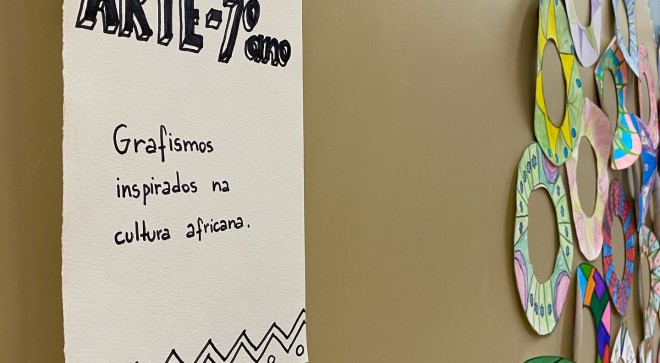 ARTE-7º ano
Grafismos
inspirados na
cultura africana.